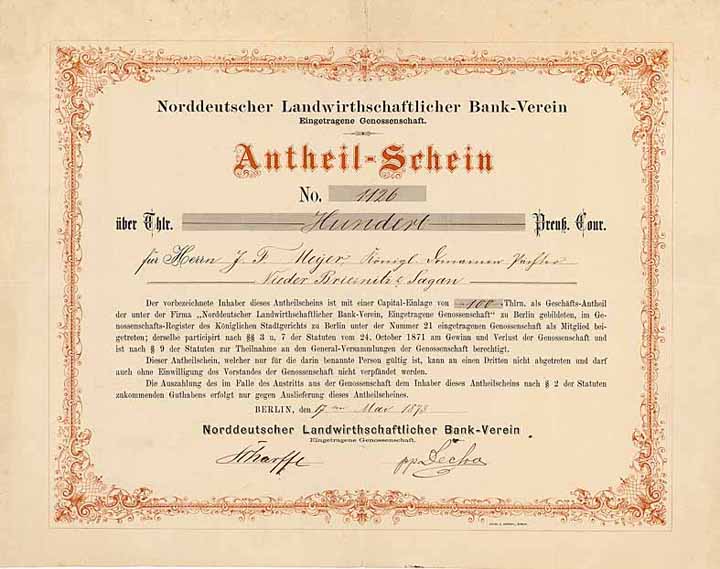 Norddeutscher Landwirthschaftlicher Bank-Verein
Eingetragene Genossenschaft.
Antheil-Schein
No. 1126
über Thlr. Hundert Preuß. Cour.
für Herrn J. F. Meyer Königl. Domainen Pächter
Nieder Briesnitz Sagan
Der vorbezeichnete Inhaber dieses Antheilscheins ist mit einer Capital-Einlage von 100 Thlrn. als Geschäfts-Antheil
der unter der Firma „Norddeutscher Landwirthschaftlicher Bank-Verein, Eingetragene Genossenschaft" zu Berlin gebildeten, im Ge-
nossenschafts-Register des Königlichen Stadtgerichts zu Berlin unter der Nummer 21 eingetragenen Genossenschaft als Mitglied bei-
getreten; derselbe participirt nach §§ 3 u. 7 der Statuten vom 24. October 1871 am Gewinn und Verlust der Genossenschaft und
ist nach § 9 der Statuten zur Theilnahme an den General-Versammlungen der Genossenschaft berechtigt.
Dieser Antheilschein, welcher nur für die darin benannte Person gültig ist, kann an einen Dritten nicht abgetreten und darf
auch ohne Einwilligung des Vorstandes der Genossenschaft nicht verpfändet werden.
Die Auszahlung des im Falle des Austritts aus der Genossenschaft dem Inhaber dieses Antheilscheins nach § 2 der Statuten
zukommenden Guthabens erfolgt nur gegen Auslieferung dieses Antheilscheines.
BERLIN, den 17ten Mai 1873
Norddeutscher Landwirthschaftlicher Bank-Verein
Eingetragene Genossenschaft.
Scharffe pp.